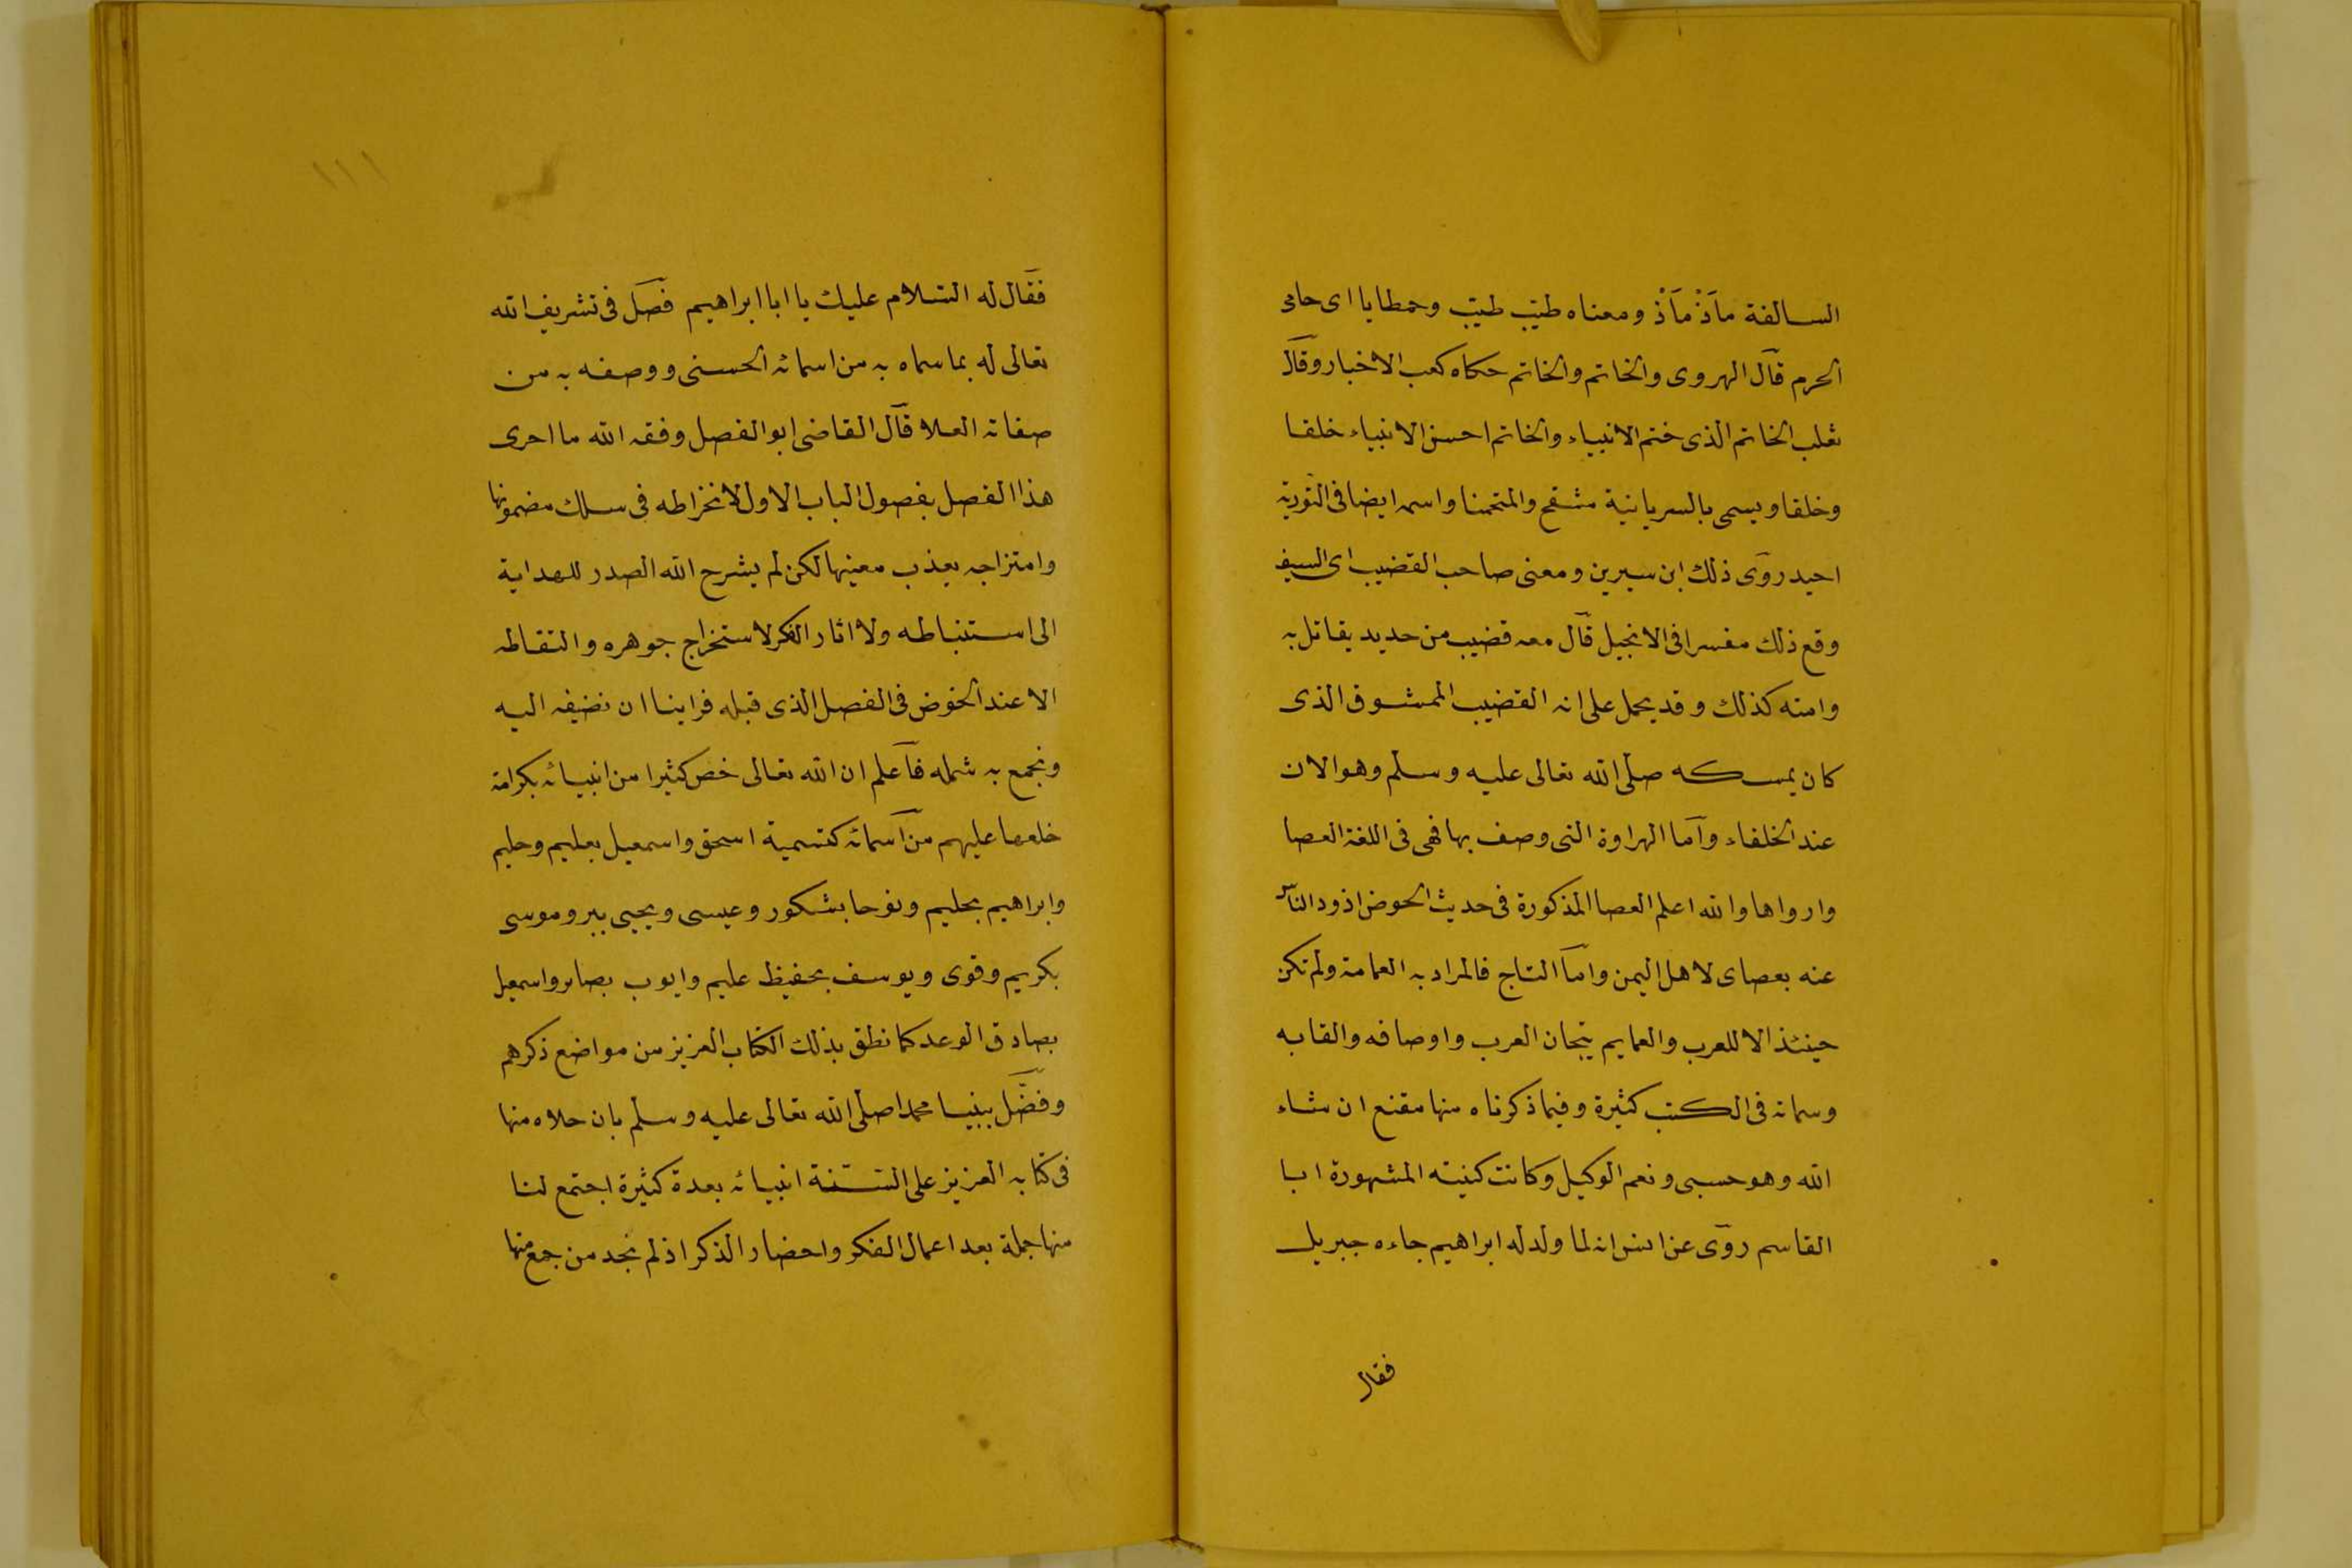 السالفة مآذ مآذ ومعناه طيّب طيّب وحمطايا اى حامى
الحرم قال الهروى والخاتم والخاتم حكاه كعب الاخبار وقال
ثعلب الخاتم الذى ختم الانبياء والخاتم احسن الانبياء خلقا
وخلقا ويسمى بالسريانية مشقح والمتحمنا واسمه ايضا فى التورية
احيد روى ذلك ابن سيرين ومعنى صاحب القضيب اى السيف
وقع ذلك مفسرا فى الانجيل قال معه قضيب من حديد يقاتل به
وامته كذلك وقد يحمل على انه القضيب الممشوق الذى
كان يمسكه صلى الله تعالى عليه وسلم وهو الان
عند الخلفاء وآما الهراوة التى وصف بها فهى فى اللغة العصا
وارواها والله اعلم العصا المذكورة فى حديث الحوض اذود الناس
عنه بعصاى لاهل اليمن وامّا التاج فالمراد به العمامة ولم تكن
حينئذ الا للعرب والعمايم تيجان العرب واوصافه والقابه
وسماته فى الكتب كثيرة وفيما ذكرناه منها مقنع ان شاء
الله وهو حسبى ونعم الوكيل وكانت كنيته المشهورة ابا
القاسم روى عن انس انه لما ولد له ابراهيم جاءه جبريل
فقال
١١١
فقال له السّلام عليك يا ابا ابراهيم فصل فى تشريف الله
تعالى له بما سماه به من اسمائه الحسنى ووصفه به من
صفاته العلا قال القاضى ابو الفصل وفقه الله ما احرى
هذا الفصل بفصول الباب الاول لانخراطه فى سلك مضمونها
وامتزاجه بعذب معينها لكن لم يشرح الله الصدر للهداية
الى استنباطه ولا اثار الفكر لاستخراج جوهره والتقاطه
الا عند الخوض فى الفصل الذى قبله فراينا ان نضيفه اليه
ونجمع به شمله فآعلم ان الله تعالى خص كثيرا من انبيائه بكرامة
خلعها عليهم من آسمائه كتسمية اسحق واسمعيل بعليم وحليم
وابراهيم بحليم ونوحا بشكور وعيسى ويحيى ببر وموسى
بكريم وقوى ويوسف بحفيظ عليم وايوب بصابر واسمعيل
بصادق الوعد كما نطق بذلك الكتاب العزيز من مواضع ذكرهم
وفضّل نبينا محمدا صلى الله تعالى عليه وسلم بان حلاه منها
فى كتابه العزيز على السّنة انبيائه بعدة كثيرة اجتمع لنا
منها جملة بعد اعمال الفكر واحضار الذكر اذ لم نجد من جمع منها